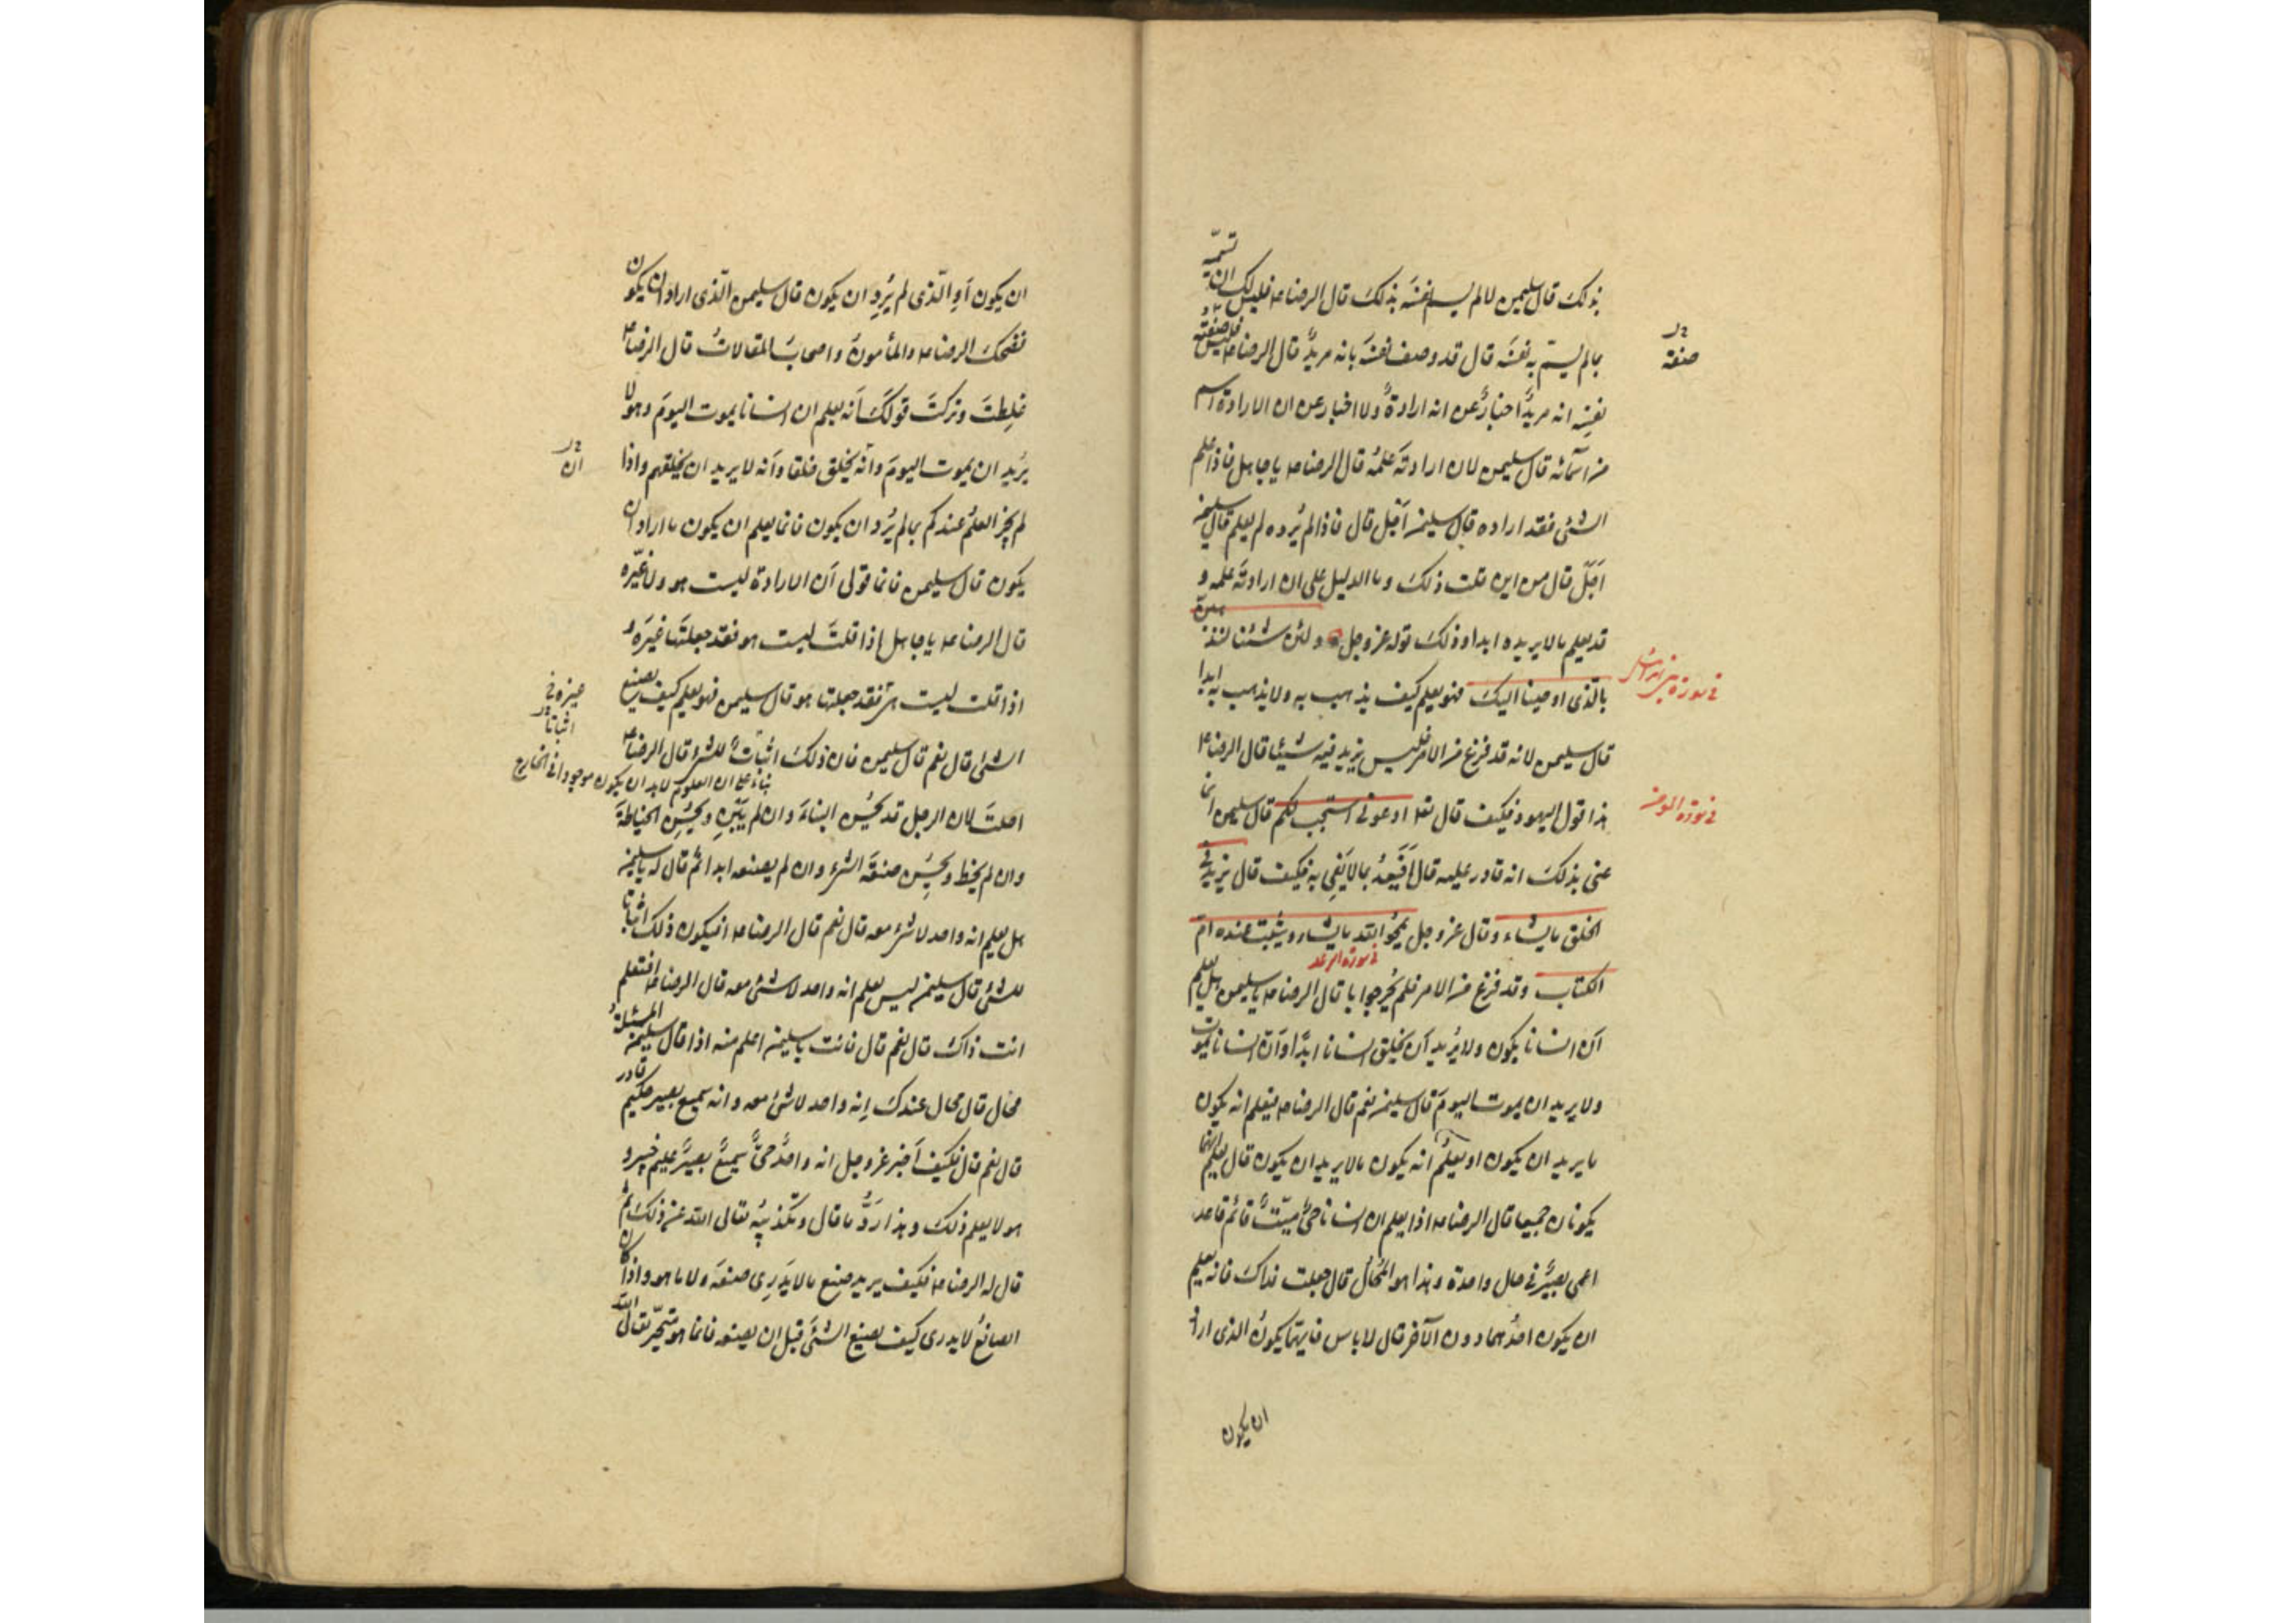 بذلك قال سليمن لا لم يسم نفسه بذلك قال الرضا ع فليس لك ان تسمّيه
بما لم يسمّ به نفسه قال قد وصف نفسه بانه مريدٌ قال الرضا ع ليس صفته
نفسِه انه مريدٌ اخبارٌ عن انه ارادةٌ ولا اخبار عن ان الارادة اسم
من اسمائه قال سليمن لان ارادتَه علمُه قال الرضا ع يا جاهل فاذا علم
الشئ فقد اراده قال سليمن اَجَل قال فاذا لم يُرده لم يعلم قال سليمن
اَجَلْ قال من اين قلت ذلكَ وما الدليل على ان ارادتَه علمه و
قد يعلم ما لا يريده ابدا وذلكَ قوله عز وجل ولئن شئنا لنذهبن
بالّذى اوحينا اليكَ فهو يعلم كيف يذهب به ولا يذهب به ابدا
قال سليمن لانه قد فرغ من الامر فليس يزيد فيه شيئا قال الرضا ع
هذا قول اليهود فكيف قال تعا ادعونى استجب لكم قال سليمن انما
عنى بذلكَ انه قادر عليه قال اَفَيَعِدُ بما لا يَفِى به فكيف قال يزيد فى
الخلق ما يشاء وقال عز وجل يمحُوا الله ما يشاء ويثبت عنده ام
فى سورة الرعد
الكتاب وقد فرغ من الامر فلم يُحِر جوابا قال الرضا ع يا سليمن هل يعلم
اَن انسانا يكون ولا يُريد اَن يَخلق انسانا ابدًا واَنّ انسانا يموت
ولا يريد ان يموت اليومَ قال سليمن نعم قال الرضا ع فيعلم انه يكون
ما يريد ان يكون او يعلمُ انه يكون ما لا يريد ان يكون قال يعلم انهما
يكونان جميعا قال الرضا ع اذا يعلم ان انسانا حىٌّ ميّتٌ قائم قاعد
اعمى بصيرٌ فى حال واحدة وهذا هو المُحالُ قال جعلت فداكَ فانه يعلم
ان يكون احدُهما دون الآخر قال لا باس فايهما يكونُ الذى اراد
ان يكون
نر
صفة
فى سورة بنى اسرائيل
فى سورة المومن
ان يكون اَوِ الّذى لم يُرِدِ ان يكون قال سليمن الّذى اراد ان يكون
فضحكَ الرضا ع والمأمونُ واصحابُ المقالاتِ قال الرضا ع
غلِطتَ وتركتَ قولَكَ اَنه يعلم ان انسانا يموت اليومَ وهو لا
يُريد ان يموت اليومَ وانّه يَخلق خلقا واَنه لا يريد ان يخلقهم واذا
لم يجز العلمُ عندكم بما لم يُرد ان يكون فانما يعلم ان يكون ما اراد ان
يكون قال سليمن فانما قولى اَن الارادة ليست هو ولا غيرَه
قال الرضا ع يا جاهل اذا قلتَ ليست هو فقد جعلتَها غيرَه و
اذا قلت ليست غيره فقد جعلتها هو قال سليمن فهو يعلم كيف يصنع
الشئ قال نعم قال سليمن فان ذلكَ اثباتٌ للشئ قال الرضا ع
بناء على ان المعلوم لابد ان يكون موجودا فى الخارج
احلتَ لان الرجل قد يُحسِن البناءَ وان لم يبَنِ ويُحسِن الخياطةَ
وان لم يخط ويُحسِن صنعةَ الشئ وان لم يصنعه ابدا ثم قال له يا سليمن
هل يعلم انه واحد لا شئ معه قال نعم قال الرضا ع افيكون ذلك اثباتا
للشئ قال سليمن ليس يعلم انه واحد لا شئ معه قال الرضا ع افتعلم
انت ذاكَ قال نعم قال فانت يا سليمن اعلم منه اذا قال سليمن المسئلة
محال قال محال عندكَ اِنه واحد لا شئ معه وانه سميع بصير حكيم قادر
قال نعم قال فكيف اَخبر عز وجل انه واحدٌ حىٌّ سميعٌ بصيرٌ عليم خبير و
هو لا يعلم ذلكَ وهذا رَدُّ ما قال وتكذيبُه تعالى الله عن ذلكَ ثم
قال له الرضا ع فكيف يريد صنع ما لا يَدرِى صنعَه ولا ما هو واذا كان
الصانعُ لا يدرى كيف يصنع الشئَ قبل ان يصنعه فانما هو متحيّر تعالى الله
نر
ان
غيره
اثباتا